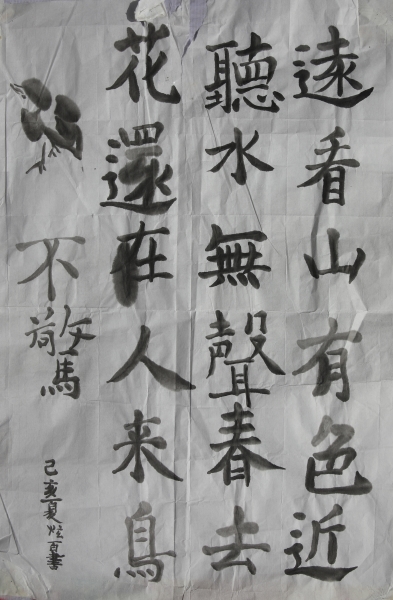 遠看山有色近
聽水無聲春去
花還在人来鳥
不驚
己亥夏書